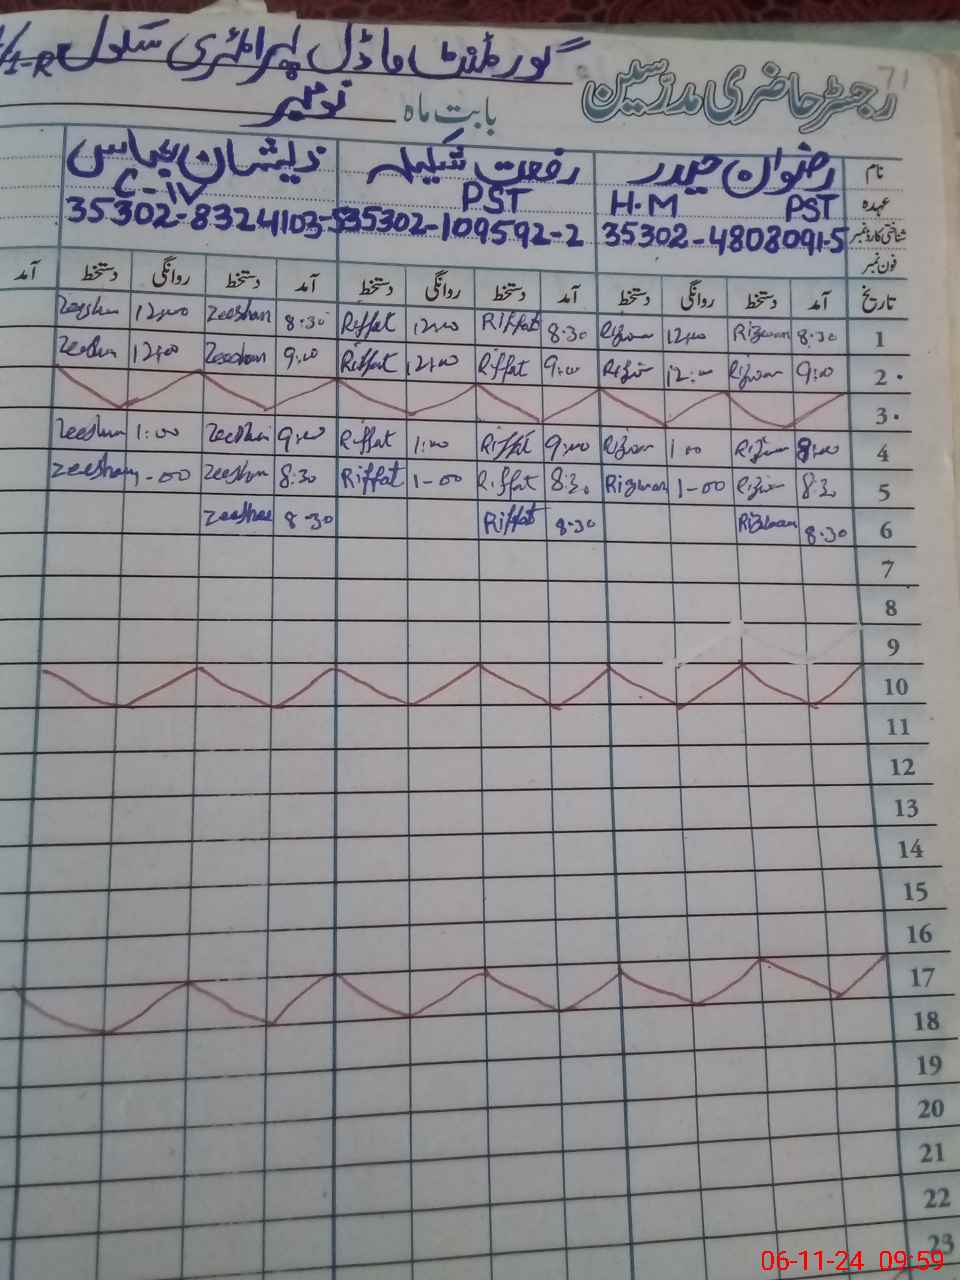 71
رجسٹر حاضری مدرسین گورنمنٹ ماڈل پرائمری سکول 1-R
بابت ماہ نومبر
نام رضوان حیدر رفعت شکیلہ ذیشان عباس
عہدہ PST H.M PST C-IV
شناختی کارڈ نمبر 35302-4808091-5 35302-109592-2 35302-8324103-5
فون نمبر
تاریخ آمد دستخط روانگی دستخط آمد دستخط روانگی دستخط آمد دستخط روانگی دستخط آمد
1 8:30 Rizwan 12:00 Rizwan 8:30 Riffat 12:00 Riffat 8:30 Zeeshan 12:00 Zeeshan
2 9:00 Rizwan 12:00 Rizwan 9:00 Riffat 12:00 Riffat 9:00 Zeeshan 12:00 Zeeshan
3
4 Rizwan 1:00 Rizwan 9:00 Riffat 1:00 Riffat 9:00 Zeeshan 1:00 Zeeshan
5 8:30 Rizwan 1-00 Rizwan 8:30 Riffat 1-00 Riffat 8:30 Zeeshan 1-00 Zeeshan
6 8:30 Rizwan 8:30 Riffat 8:30 Zeeshan
7
8
9
10
11
12
13
14
15
16
17
18
19
20
21
22
23
06-11-24 09:59